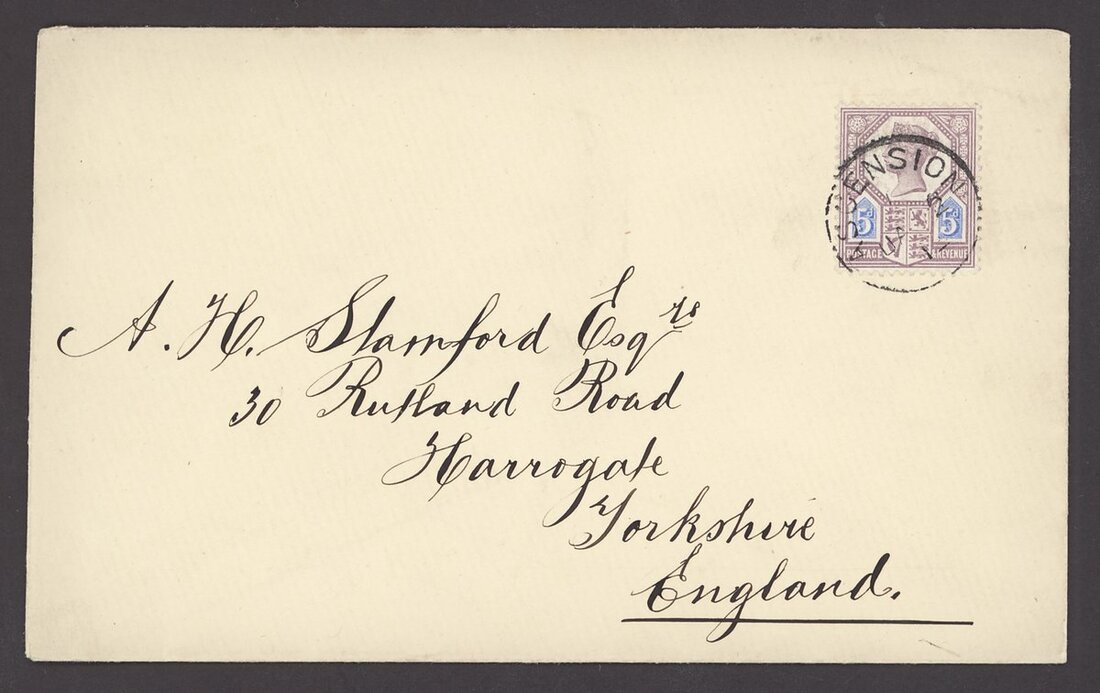 ASCENSION
5d 5d
POSTAGE & REVENUE
A. H. Stamford Esqre
30 Rutland Road
Harrogate
Yorkshire
England.